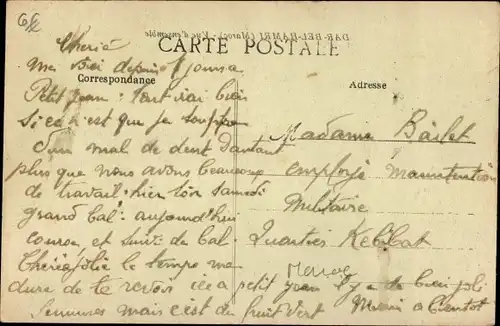 62
DAR-BEL-HAMRI (Maroc) - Vue d'ensemble
CARTE POSTALE
Correspondance
Adresse
Cherie
me voici depuis 8 jours a
Petit Jean : tout vai bien
Si ce n'est que je souffre
d'un mal de dent d'autant
plus que nous avons beaucoup
de travail : hier soir samedi
grand bal : aujourd'hui
course et suivi de bal.
Cherie le temps me
dure de te revoir ici a petit Jean il y a de bien joli
femmes mais c'est du fruit vert
a bientot
Madame Barlet
employé Manutention
Militaire
Quartier Kebibat
Maroc